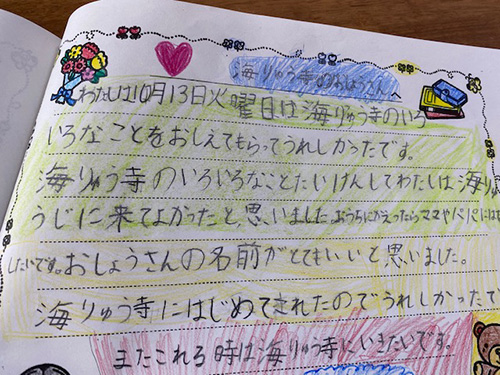 海りゅう寺のおしょうさんへ
わたしは10月13日火曜日は海りゅう寺のいろ
いろなことをおしえてもらってうれしかったです。
海りゅう寺のいろいろなことたいけんしてわたしは海りゅ
うじに来てよかったと、思いました。おうちにかえったらママやパパにはな
したいです。おしょうさんの名前がとてもいいと思いました。
海りゅう寺にはじめてきれたのでうれしかったで
またこれる時は海りゅう寺にいきたいです。